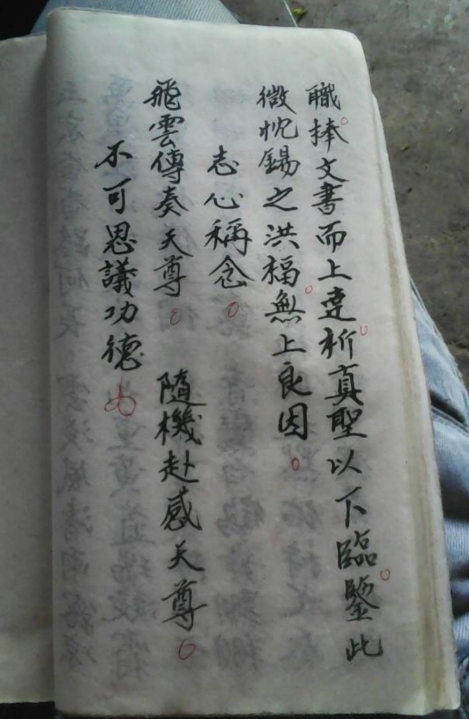 職捧文書而上達祈真聖以下臨鑒此
微忱錫之洪福無上良因
志心稱念
飛雲傳奏天尊 隨機赴感天尊
不可思議功德